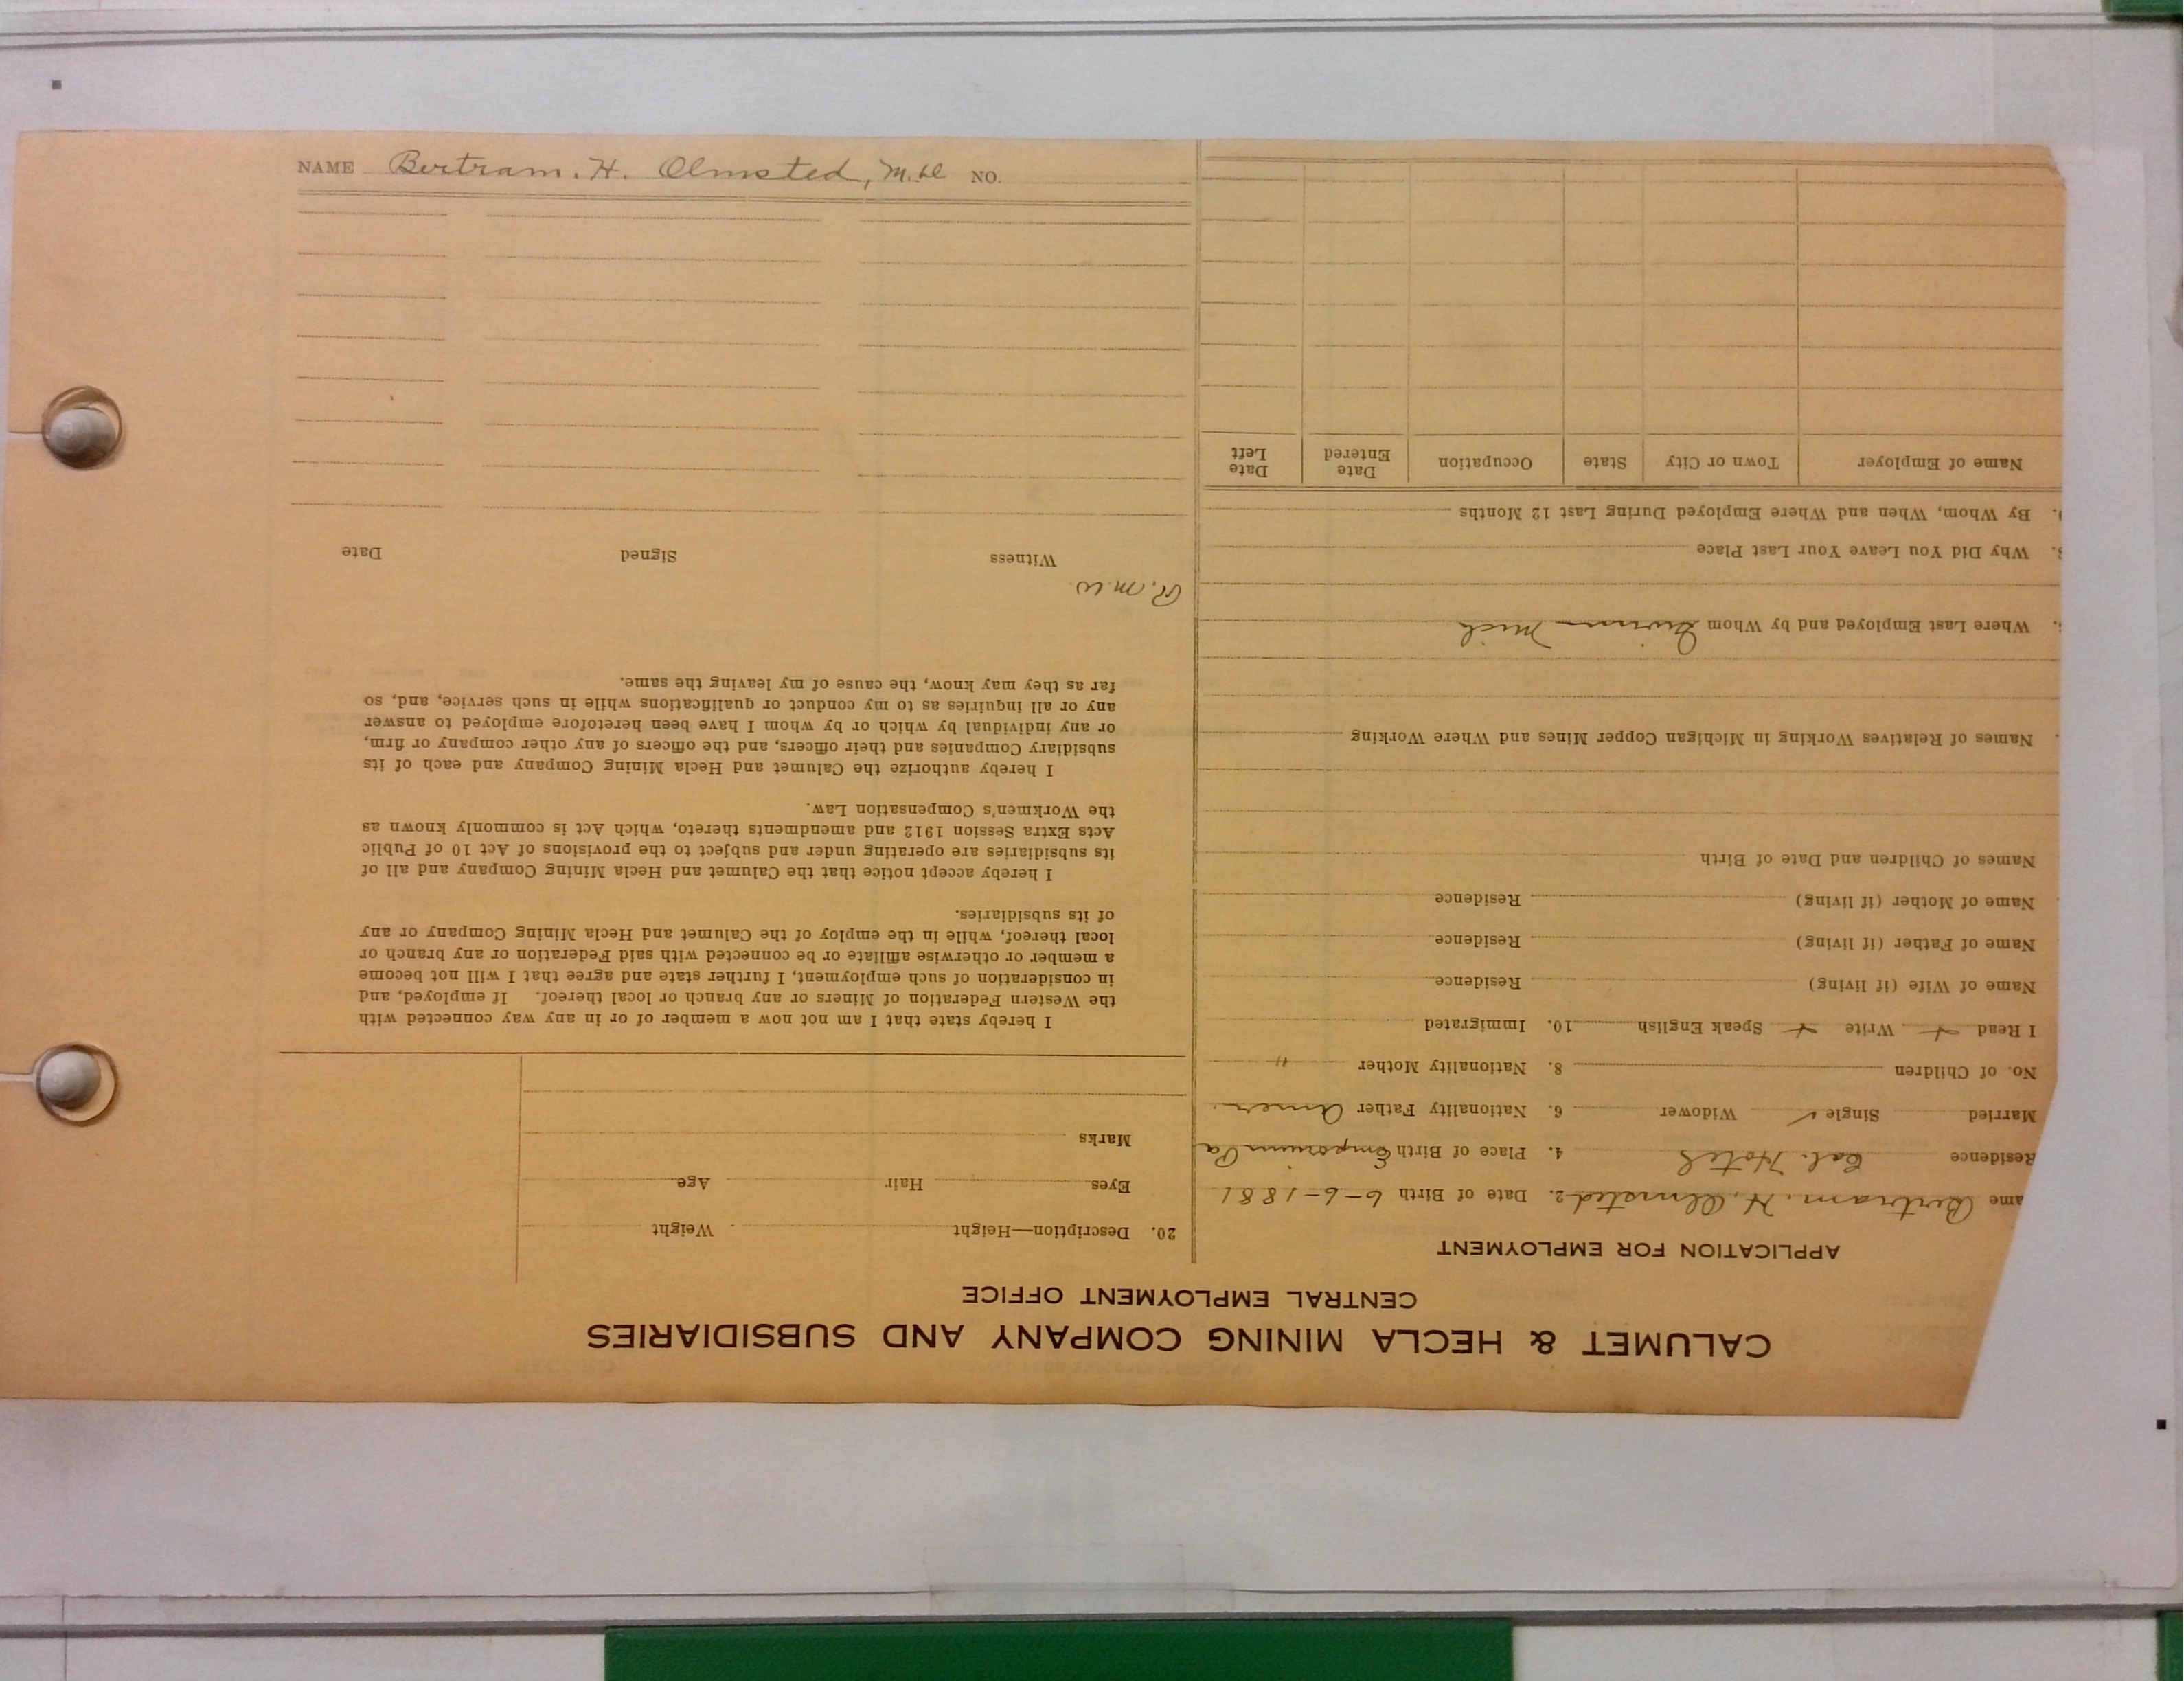 NAME Bertram. H. Olmsted, M.D. NO.
CALUMET & HECLA MINING COMPANY AND SUBSIDIARIES
CENTRAL EMPLOYMENT OFFICE
APPLICATION FOR EMPLOYMENT
ame Bertram. H. Olmsted 2. Date of Birth 6-6-1881
Residence Cal. Hotel 4. Place of Birth Emporium Pa
Married Single ✓ Widower 6. Nationality Father Amer.
No. of Children 8. Nationality Mother "
I Read + Write + Speak English 10. Immigrated
Name of Wife (if living) Residence
Name of Father (if living) Residence
Name of Mother (if living) Residence
Names of Children and Date of Birth
Names of Relatives Working in Michigan Copper Mines and Where Working
Where Last Employed and by Whom Mich
Why Did You Leave Your Last Place
By Whom, When and Where Employed During Last 12 Months
Name of Employer Town or City State Occupation Date Entered Date Left
20. Description—Height Weight
Eyes Hair Age
Marks
I hereby state that I am not now a member of or in any way connected with
the Western Federation of Miners or any branch or local thereof. If employed, and
in consideration of such employment, I further state and agree that I will not become
a member or otherwise affiliate or be connected with said Federation or any branch or
local thereof, while in the employ of the Calumet and Hecla Mining Company or any
of its subsidiaries.
I hereby accept notice that the Calumet and Hecla Mining Company and all of
its subsidiaries are operating under and subject to the provisions of Act 10 of Public
Acts Extra Session 1912 and amendments thereto, which Act is commonly known as
the Workmen's Compensation Law.
I hereby authorize the Calumet and Hecla Mining Company and each of its
subsidiary Companies and their officers, and the officers of any other company or firm,
or any individual by which or by whom I have been heretofore employed to answer
any or all inquiries as to my conduct or qualifications while in such service, and, so
far as they may know, the cause of my leaving the same.
R.M.W.
Witness Signed Date